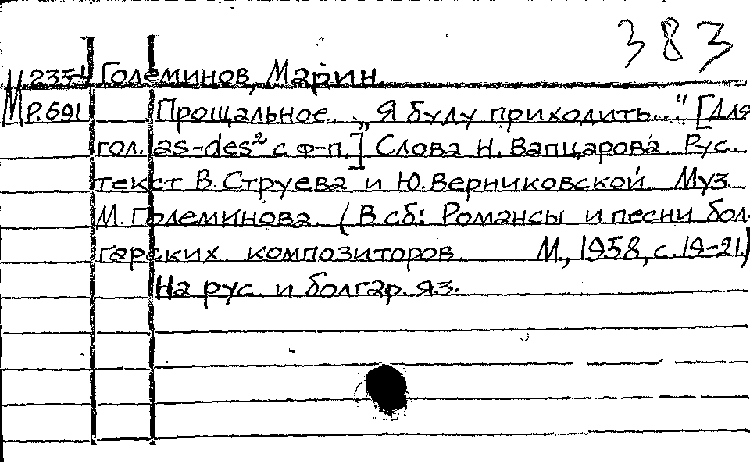 383
М 2334 Големинов, Марин.
М Р.691 Прощальное. „Я буду приходить..." [Для
гол. as-des² с ф-п.] Слова Н. Вапцарова. Рус.
текст В. Струева и Ю. Верниковской. Муз.
М. Големинова. (В сб: Романсы и песни бол-
гарских композиторов. М., 1958, с. 19-21.)
На рус. и болгар. яз.